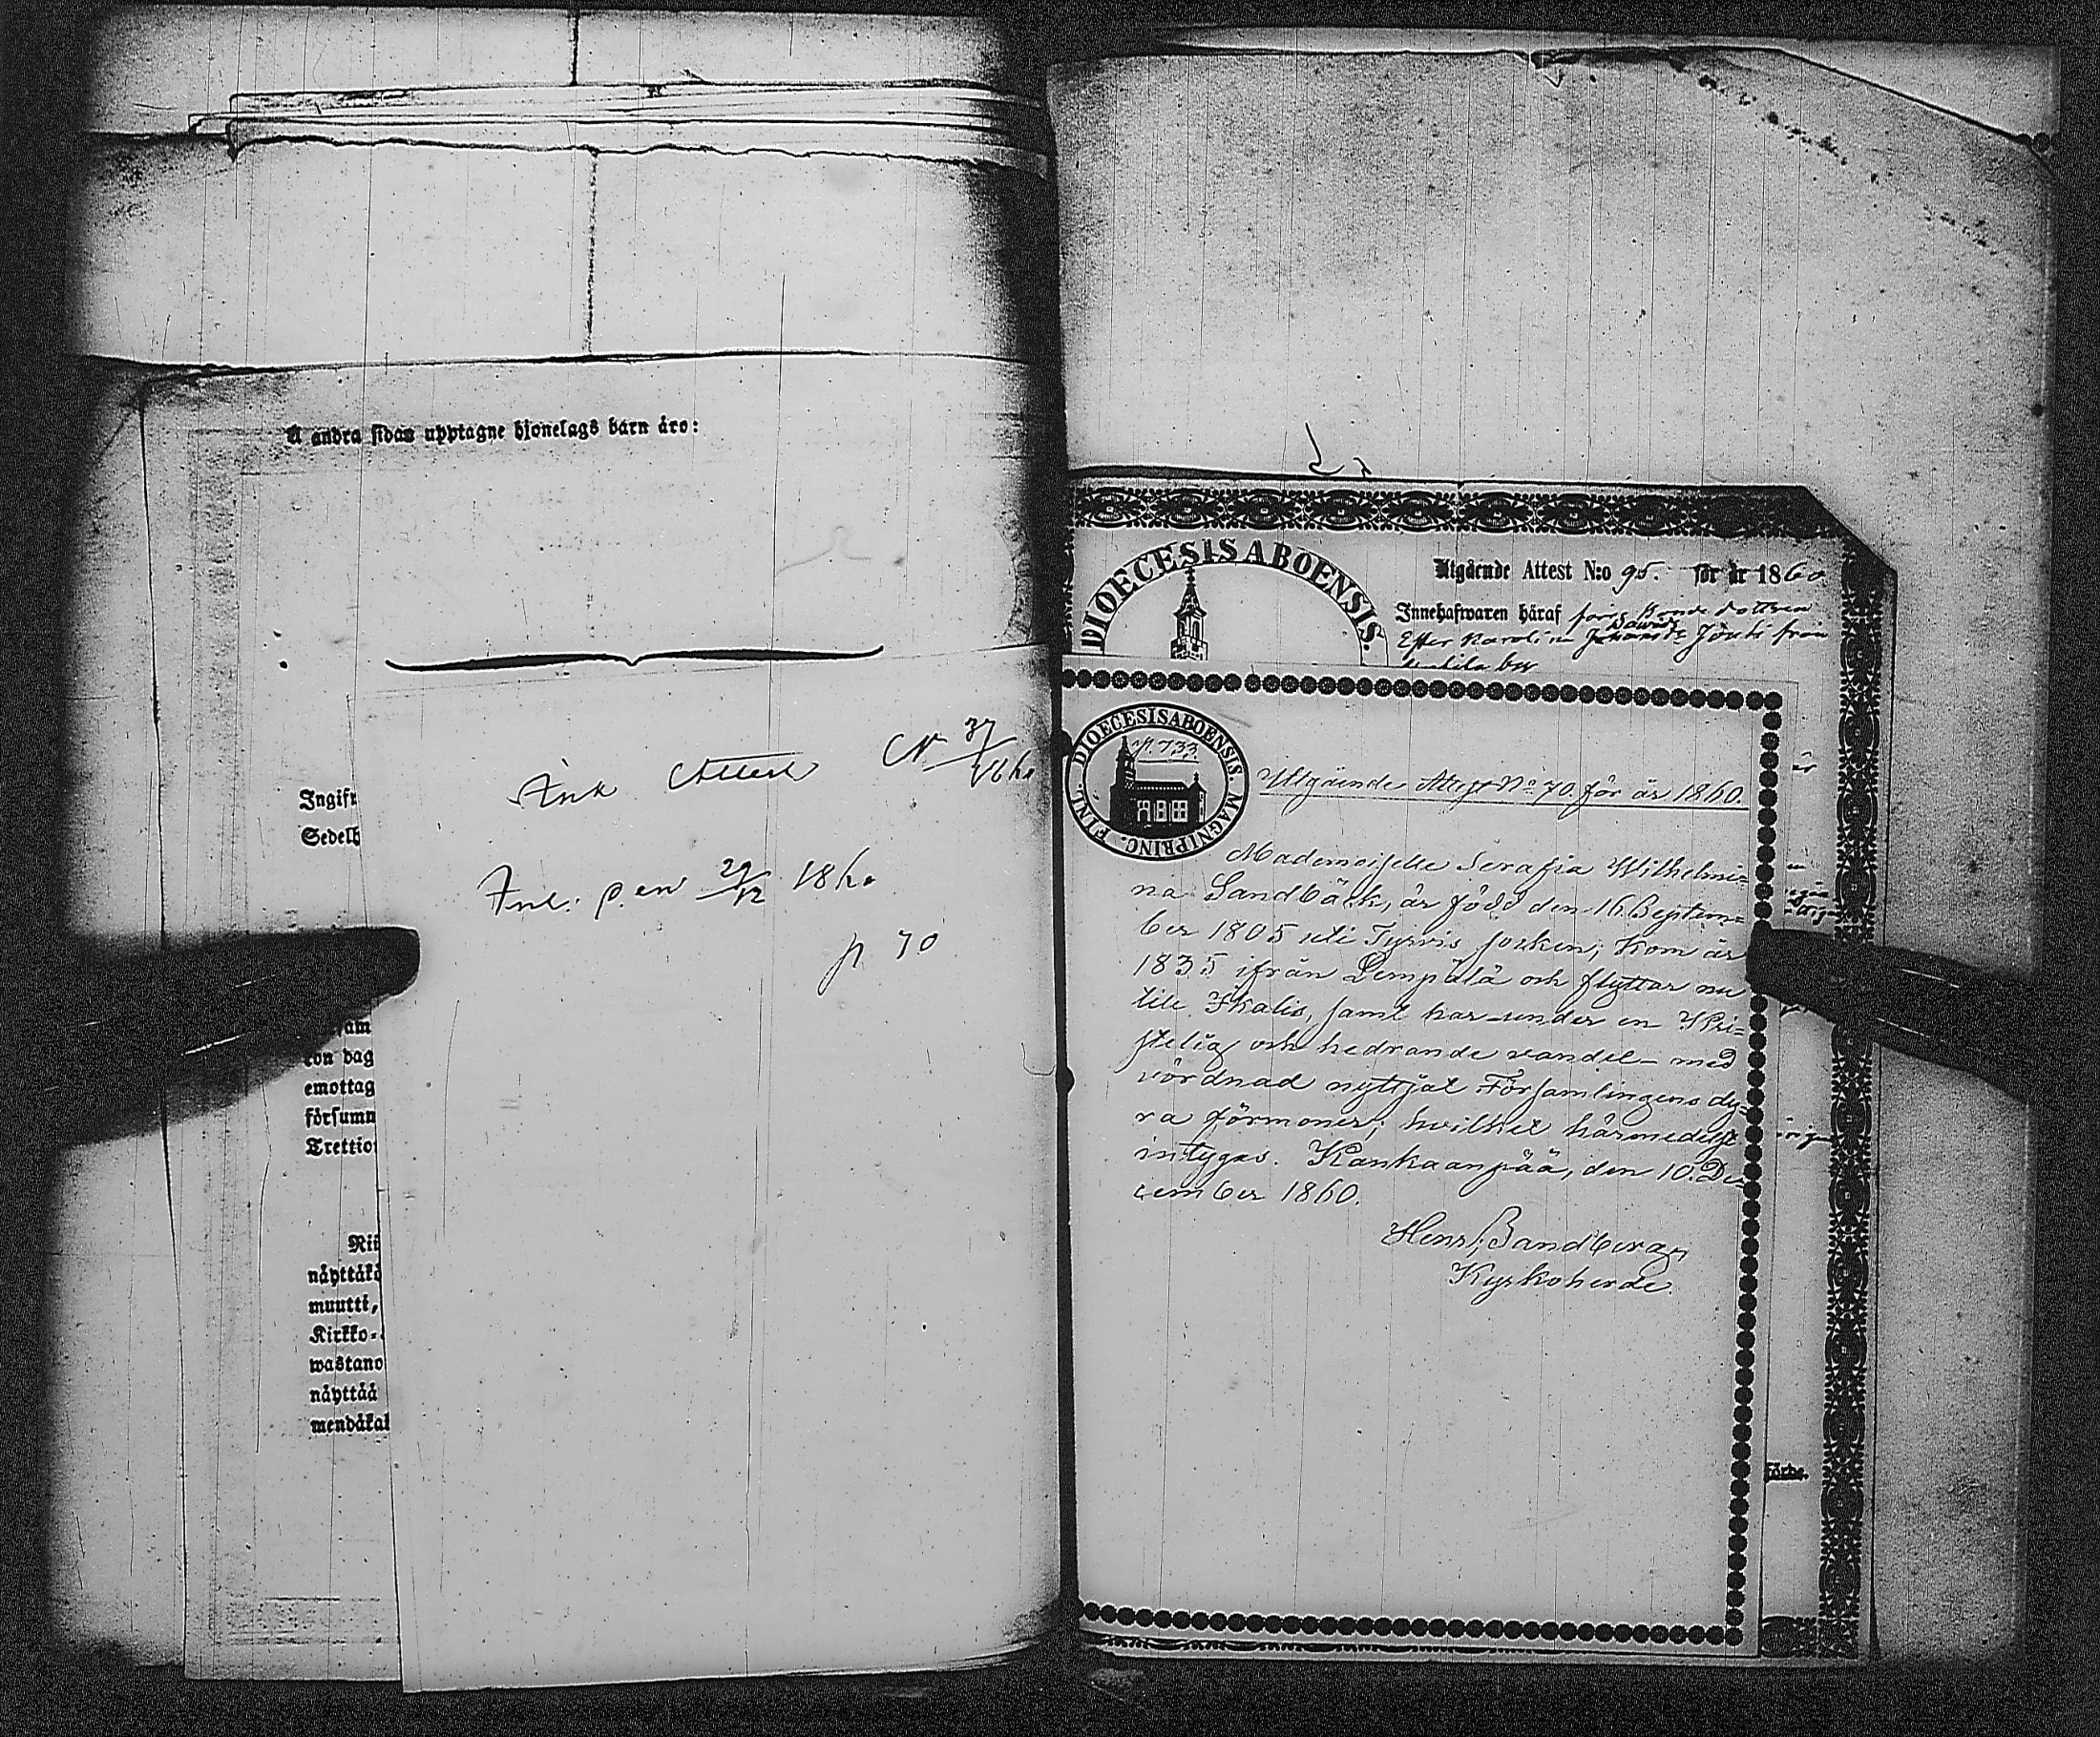 A andra sidan upptagne hjonelags barn äro:
Ingift
Sedelb
sam
ton dag
emottag
försumm
Trettio
Nii
näyttäkö
muutti,
Kirkko=
wastano
näyttää
mendäkäl
Ink Attest N 37/1860
Ink: p. en 29/12 1860
p 70
DIOECESIS ABOENSIS.
Utgående Attest N:o 95. för år 1860
Innehafwaren häraf förre Bonde dottren
Ester Karolina Davids Jönti från
by
DIOECESIS ABOENSIS. MAGNI PRINC. FINL.
p. 733
Utgående Attest No 70. för år 1860.
Mademoiselle Serafia Wilhelmi=
na Sandbäck, är född den 16 Septem=
ber 1805 uti Tyrvis socken; kom år
1835 ifrån Lempälä och flyttar nu
till Ikalis, samt har under en Kri=
stelig och hedrande vandel med
vördnad nyttjat Församlingens dy=
ra förmoner; hvilket härmedelst
intygas. Kankaanpää, den 10. De=
cember 1860.
Henr. Sandberg,
Kyrkoherde.
förde.